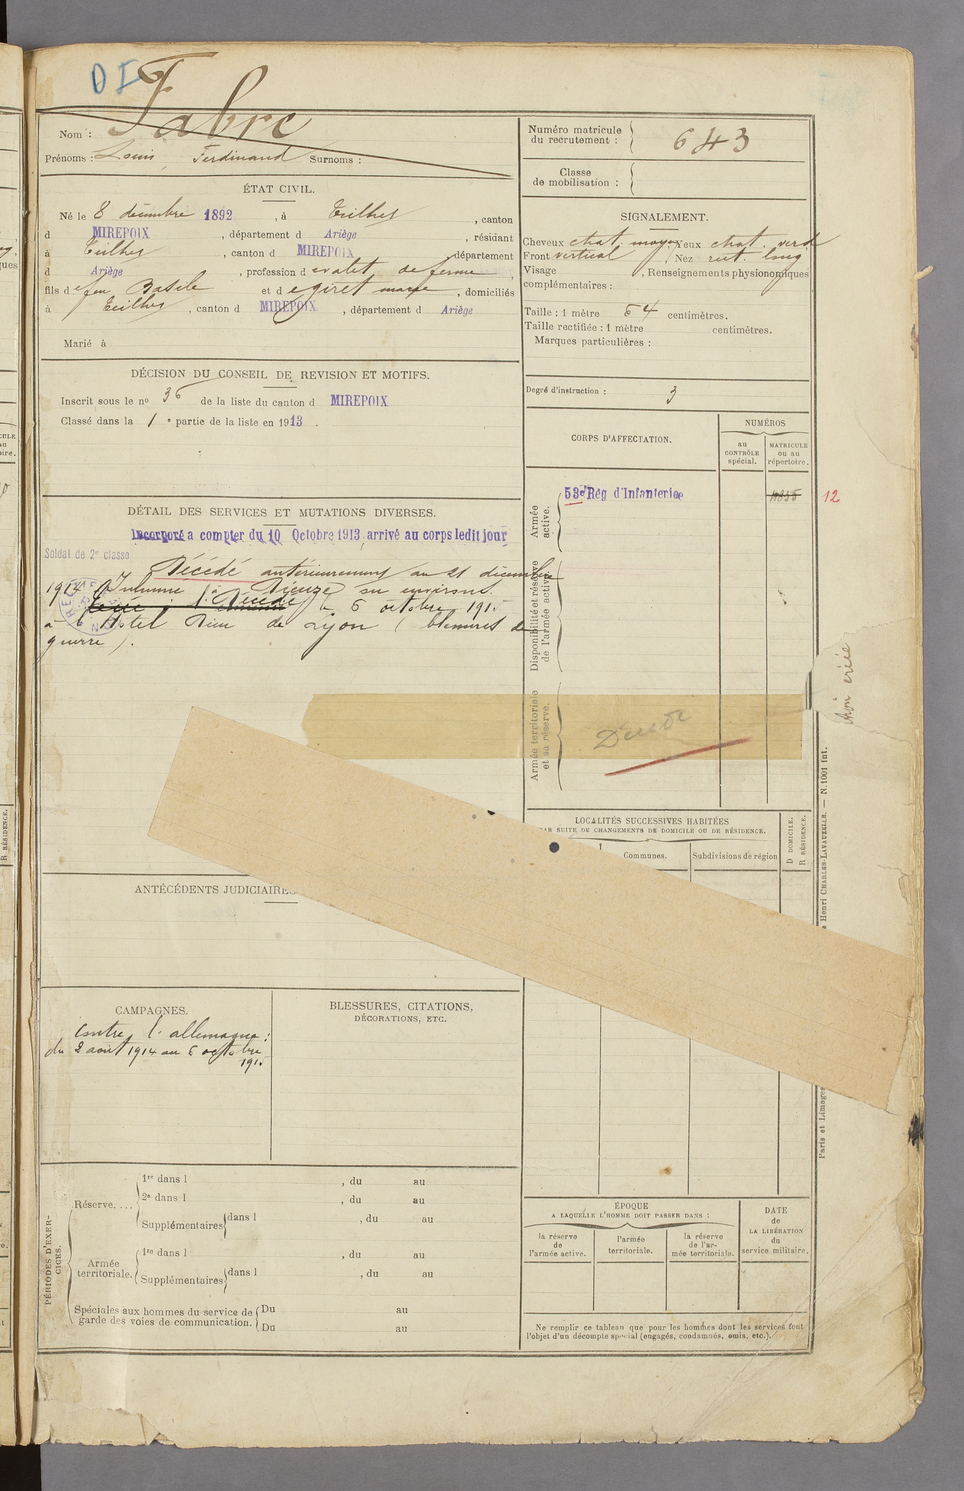 DI
Nom : Fabre
Prénoms : Louis Ferdinand Surnoms :
Numéro matricule du recrutement : 643
Classe de mobilisation :
ÉTAT CIVIL.
Né le 8 décembre 1892, à Teilhet, canton
d MIREPOIX, département d Ariège, résidant
à Teilhet, canton d MIREPOIX, département
d Ariège, profession d e valet de ferme,
fils d e feu Basile et d e giret marie, domiciliés
à Teilhet, canton d MIREPOIX, département d Ariège
Marié à
SIGNALEMENT.
Cheveux chat. moyen, Yeux chat. verd
Front vertical, Nez rect. long
Visage, Renseignements physionomiques
complémentaires :
Taille : 1 mètre 54 centimètres.
Taille rectifiée : 1 mètre centimètres.
Marques particulières :
Degré d'instruction : 3
DÉCISION DU CONSEIL DE REVISION ET MOTIFS.
Inscrit sous le no 36 de la liste du canton d MIREPOIX
Classé dans la 1e partie de la liste en 1913.
CORPS D'AFFECTATION.
NUMÉROS
au CONTRÔLE spécial.
MATRICULE ou au répertoire.
Armée active.
53e Rég d'Infanterie
12
Disponibilité et réserve de l'armée active.
Armée territoriale et sa réserve.
Décédé
DÉTAIL DES SERVICES ET MUTATIONS DIVERSES.
Incorporé a compter du 10 Octobre 1913, arrivé au corps ledit jour
Soldat de 2e classe
Décédé antérieurement au 21 décembre
1914. Inhumé à Dieuze ou environs.
Décédé le 6 octobre 191
à l'Hôtel Dieu de Lyon (blessures de
guerre).
tion criée
LOCALITÉS SUCCESSIVES HABITÉES
PAR SUITE DE CHANGEMENTS DE DOMICILE OU DE RÉSIDENCE.
Communes.
Subdivisions de région
D DOMICILE.
R RÉSIDENCE.
ANTÉCÉDENTS JUDICIAIRES
CAMPAGNES.
Contre l'allemagne :
du 2 août 1914 au 6 octobre
191
BLESSURES, CITATIONS,
DÉCORATIONS, ETC.
PÉRIODES D'EXERCICES.
Réserve....
1re dans l, du au
2e dans l, du au
Supplémentaires dans l, du au
Armée territoriale.
1re dans l, du au
Supplémentaires dans l, du au
Spéciales aux hommes du service de
garde des voies de communication.
Du au
Du au
ÉPOQUE
A LAQUELLE L'HOMME DOIT PASSER DANS :
la réserve de l'armée active.
l'armée territoriale.
la réserve de l'armée territoriale.
DATE de LA LIBÉRATION du service militaire.
Ne remplir ce tableau que pour les hommes dont les services font
l'objet d'un décompte spécial (engagés, condamnés, omis, etc.).
Paris et Limoges
Henri CHARLES-LAVAUZELLE. — N. 1001 Int.
R RÉSIDENCE.